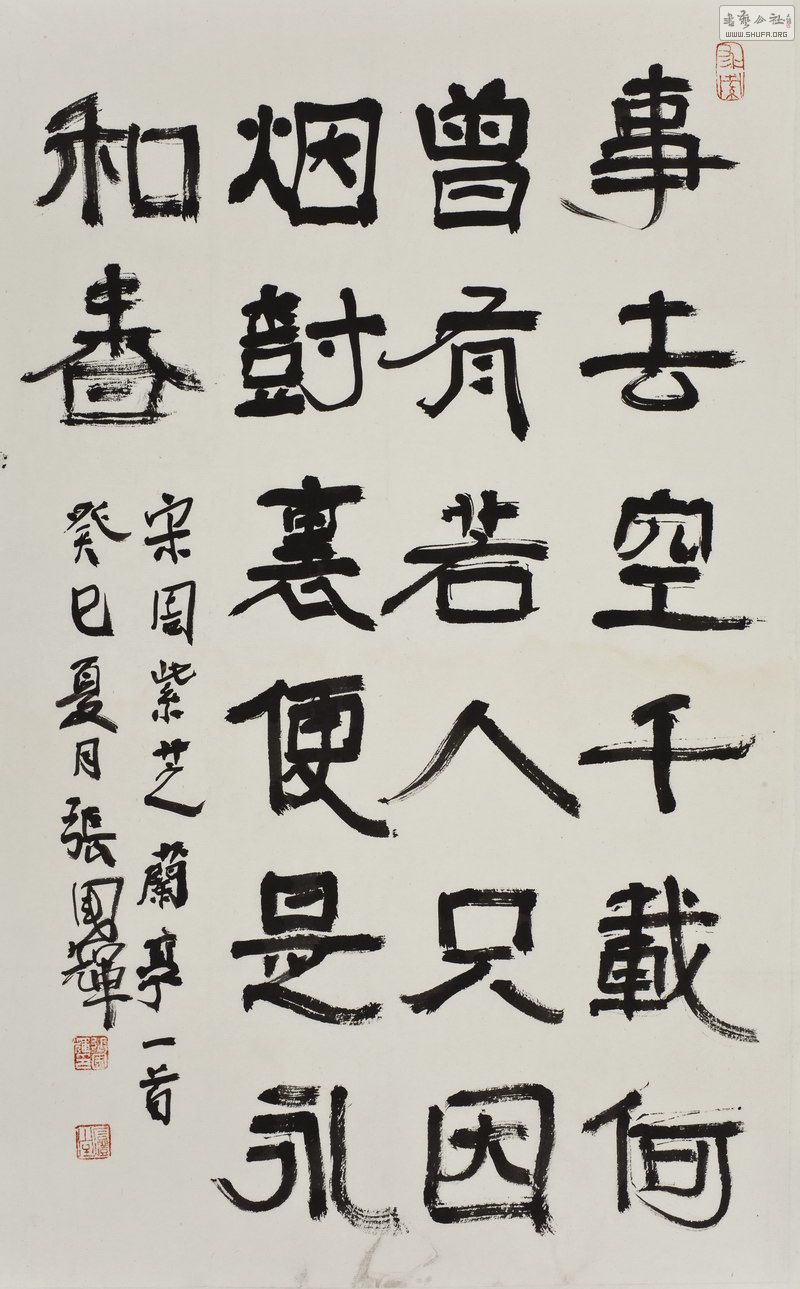 事去空千載何
曾有若人只因
烟對裏便是永
和春
宋周紫芝蘭亭一首
癸巳夏月張國輝
書藝公社
WWW.SHUFA.ORG